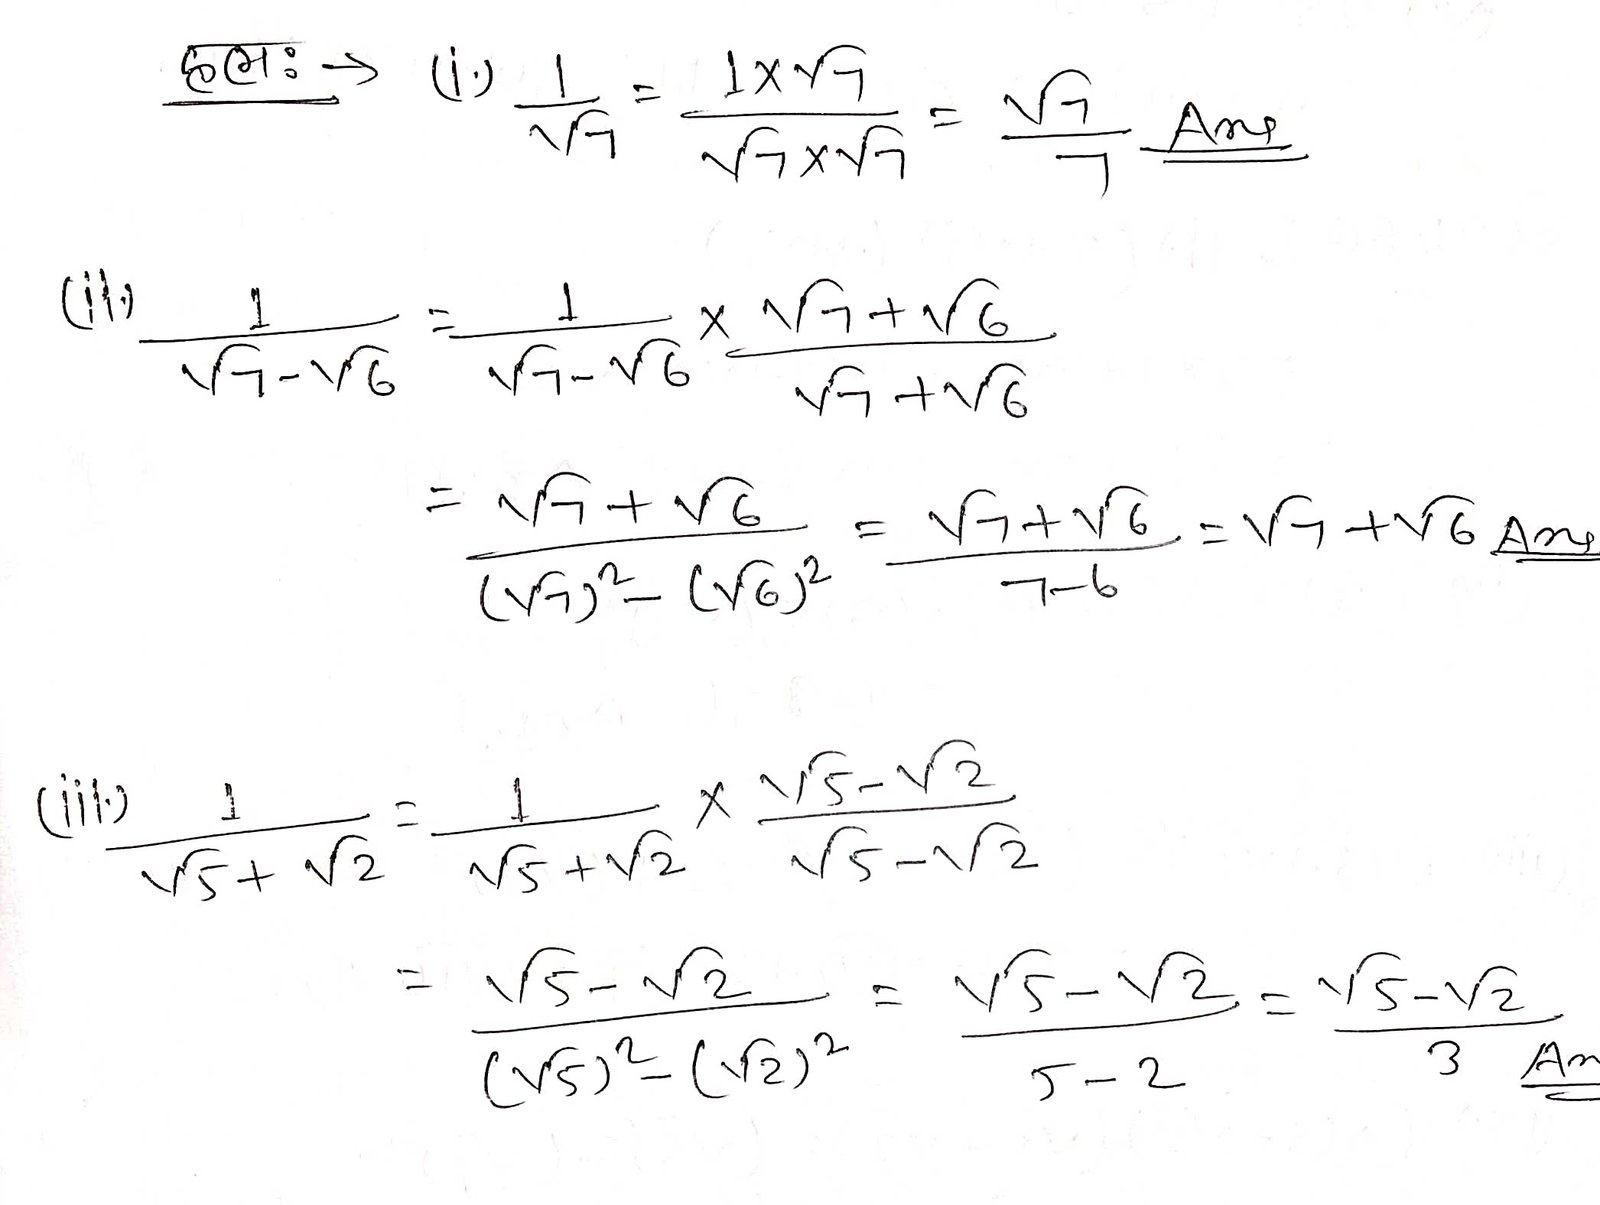 हलः → (i.) 1/√7 = (1×√7)/(√7×√7) = √7/7 Ans
(ii.) 1/(√7-√6) = 1/(√7-√6) × (√7+√6)/(√7+√6)
= (√7+√6)/((√7)²-(√6)²) = (√7+√6)/(7-6) = √7+√6 Ans
(iii.) 1/(√5+√2) = 1/(√5+√2) × (√5-√2)/(√5-√2)
= (√5-√2)/((√5)²-(√2)²) = (√5-√2)/(5-2) = (√5-√2)/3 An